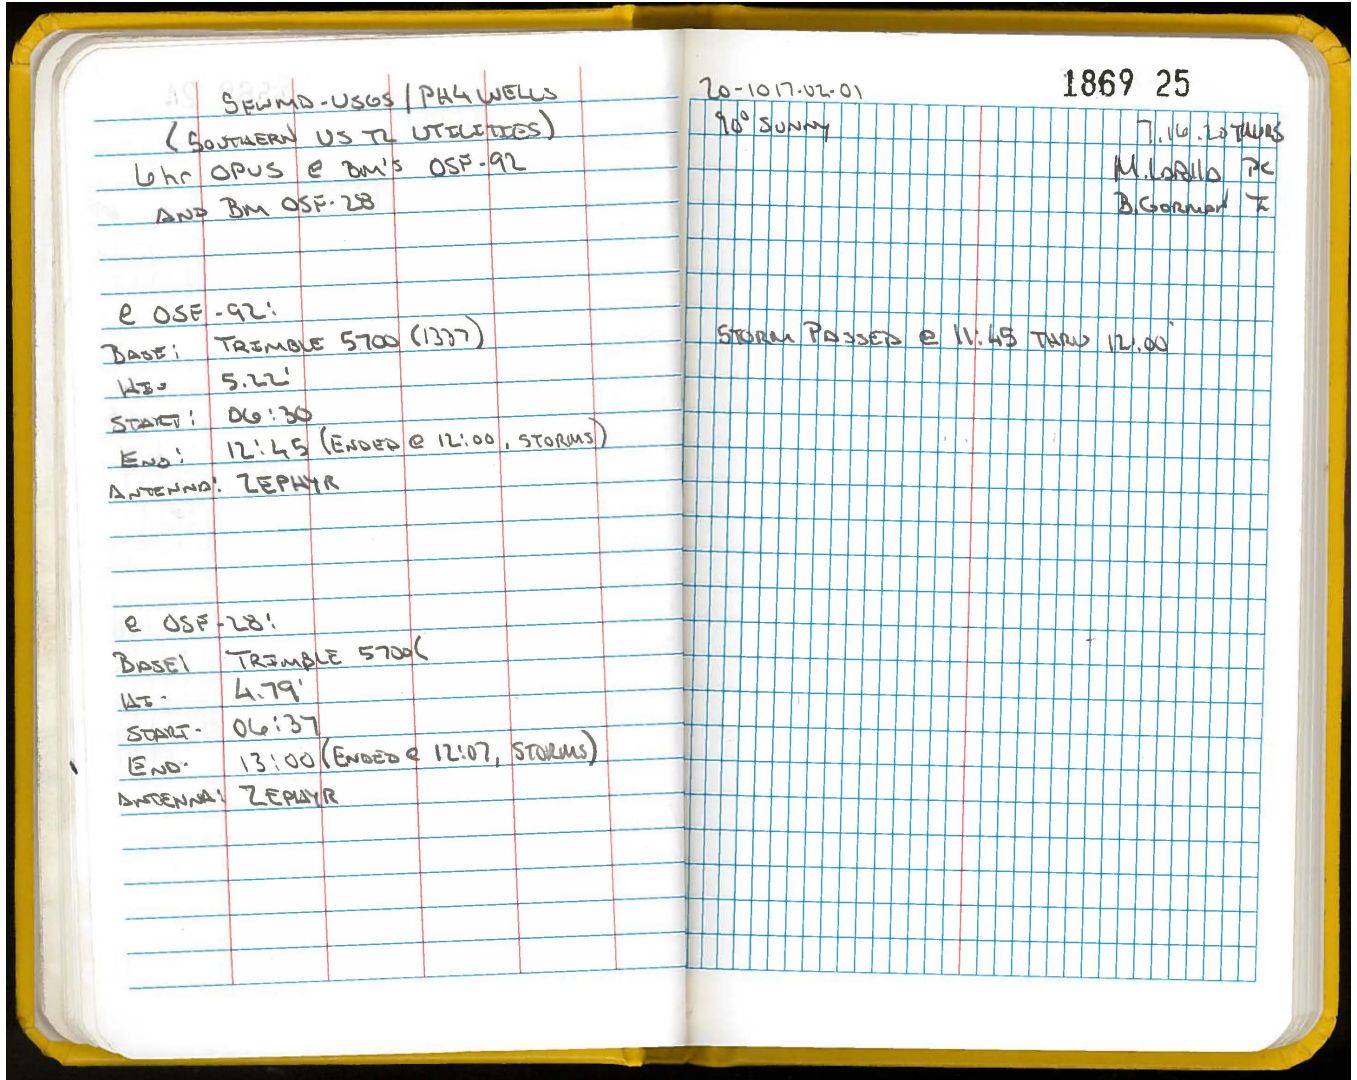 SFWMD-USGS / PH4 WELLS
(SOUTHERN US TL UTILITIES)
6hr OPUS @ BM'S OSF-92
AND BM OSF-28
@ OSF-92:
BASE: TRIMBLE 5700 (1337)
HI- 5.22'
START: 06:30
END: 12:45 (ENDED @ 12:00, STORMS)
ANTENNA: ZEPHYR
@ OSF-28:
BASE: TRIMBLE 5700(
HI- 4.79'
START- 06:37
END- 13:00 (ENDED @ 12:07, STORMS)
ANTENNA: ZEPHYR
20-1017-02-01
1869 25
90° SUNNY
7.16.20 THURS
M. PC
B. GORMAN I
STORM PASSED @ 11:45 THRU 12:00